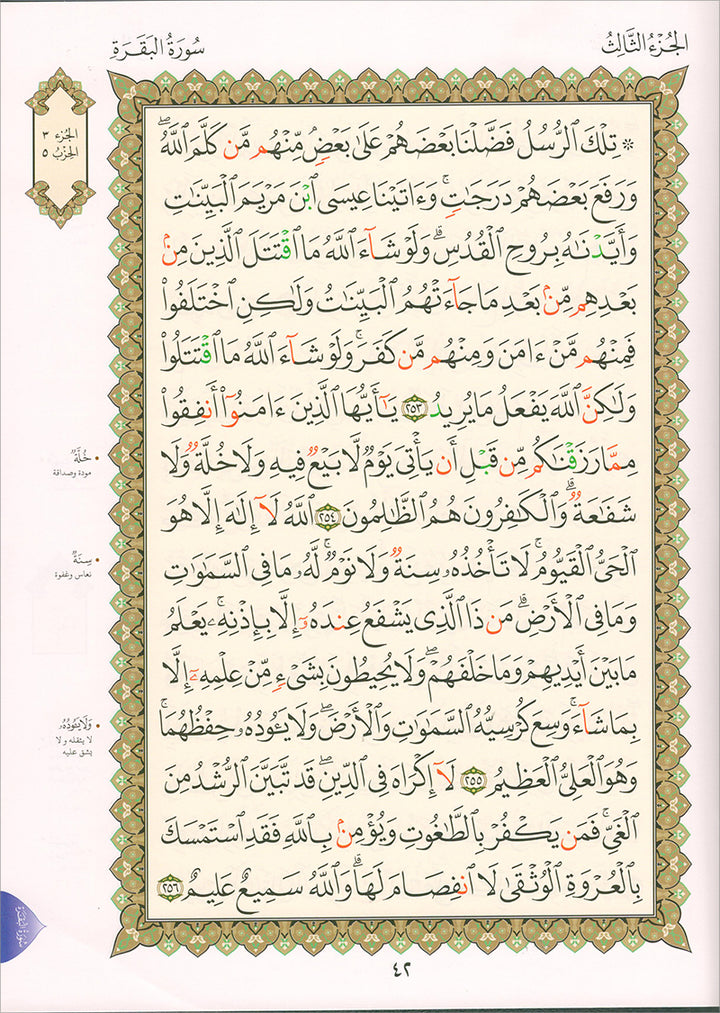 الجُزْءُ الثَّالِثُ
سُورَةُ البَقَرَةِ
الجُزء ٣
الحِزْبُ ٥
۞ تِلْكَ ٱلرُّسُلُ فَضَّلْنَا بَعْضَهُمْ عَلَىٰ بَعْضٍ مِّنْهُم مَّن كَلَّمَ ٱللَّهُ ۖ
وَرَفَعَ بَعْضَهُمْ دَرَجَٰتٍ ۚ وَءَاتَيْنَا عِيسَى ٱبْنَ مَرْيَمَ ٱلْبَيِّنَٰتِ
وَأَيَّدْنَٰهُ بِرُوحِ ٱلْقُدُسِ ۗ وَلَوْ شَآءَ ٱللَّهُ مَا ٱقْتَتَلَ ٱلَّذِينَ مِنۢ
بَعْدِهِم مِّنۢ بَعْدِ مَا جَآءَتْهُمُ ٱلْبَيِّنَٰتُ وَلَٰكِنِ ٱخْتَلَفُوا۟
فَمِنْهُم مَّنْ ءَامَنَ وَمِنْهُم مَّن كَفَرَ ۚ وَلَوْ شَآءَ ٱللَّهُ مَا ٱقْتَتَلُوا۟
وَلَٰكِنَّ ٱللَّهَ يَفْعَلُ مَا يُرِيدُ ٢٥٣ يَٰٓأَيُّهَا ٱلَّذِينَ ءَامَنُوٓا۟ أَنفِقُوا۟
مِمَّا رَزَقْنَٰكُم مِّن قَبْلِ أَن يَأْتِىَ يَوْمٌ لَّا بَيْعٌ فِيهِ وَلَا خُلَّةٌ وَلَا
شَفَٰعَةٌ ۗ وَٱلْكَٰفِرُونَ هُمُ ٱلظَّٰلِمُونَ ٢٥٤ ٱللَّهُ لَآ إِلَٰهَ إِلَّا هُوَ
ٱلْحَىُّ ٱلْقَيُّومُ ۚ لَا تَأْخُذُهُۥ سِنَةٌ وَلَا نَوْمٌ ۚ لَّهُۥ مَا فِى ٱلسَّمَٰوَٰتِ
وَمَا فِى ٱلْأَرْضِ ۗ مَن ذَا ٱلَّذِى يَشْفَعُ عِندَهُۥٓ إِلَّا بِإِذْنِهِۦ ۚ يَعْلَمُ
مَا بَيْنَ أَيْدِيهِمْ وَمَا خَلْفَهُمْ ۖ وَلَا يُحِيطُونَ بِشَىْءٍ مِّنْ عِلْمِهِۦٓ إِلَّا
بِمَا شَآءَ ۚ وَسِعَ كُرْسِيُّهُ ٱلسَّمَٰوَٰتِ وَٱلْأَرْضَ ۖ وَلَا يَـُٔودُهُۥ حِفْظُهُمَا ۚ
وَهُوَ ٱلْعَلِىُّ ٱلْعَظِيمُ ٢٥٥ لَآ إِكْرَاهَ فِى ٱلدِّينِ ۖ قَد تَّبَيَّنَ ٱلرُّشْدُ مِنَ
ٱلْغَىِّ ۚ فَمَن يَكْفُرْ بِٱلطَّٰغُوتِ وَيُؤْمِنۢ بِٱللَّهِ فَقَدِ ٱسْتَمْسَكَ
بِٱلْعُرْوَةِ ٱلْوُثْقَىٰ لَا ٱنفِصَامَ لَهَا ۗ وَٱللَّهُ سَمِيعٌ عَلِيمٌ ٢٥٦
• خُلَّةٌ
مودة وصداقة
• سِنَةٌ
نعاس وغفوة
• وَلَا يَـُٔودُهُۥ
لا يثقله ولا
يشق عليه
سُورَةُ البَقَرَةِ
٤٢